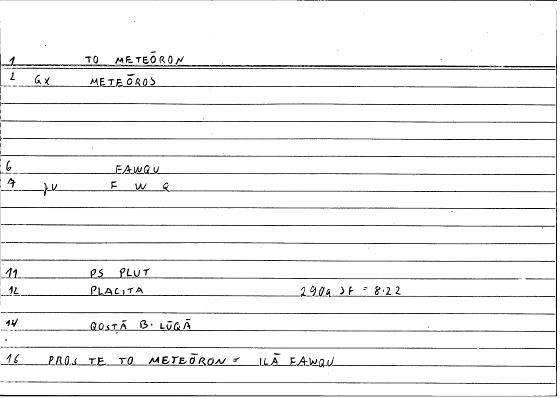 1 TO METEŌRON
2 GX METEŌROS
6 FAWQU
7 F W Q
11 PS PLUT
12 PLACITA 290a = 8.22
14 QOSTĀ B. LŪQĀ
16 PROS TE TO METEŌRON = ILĀ FAWQU